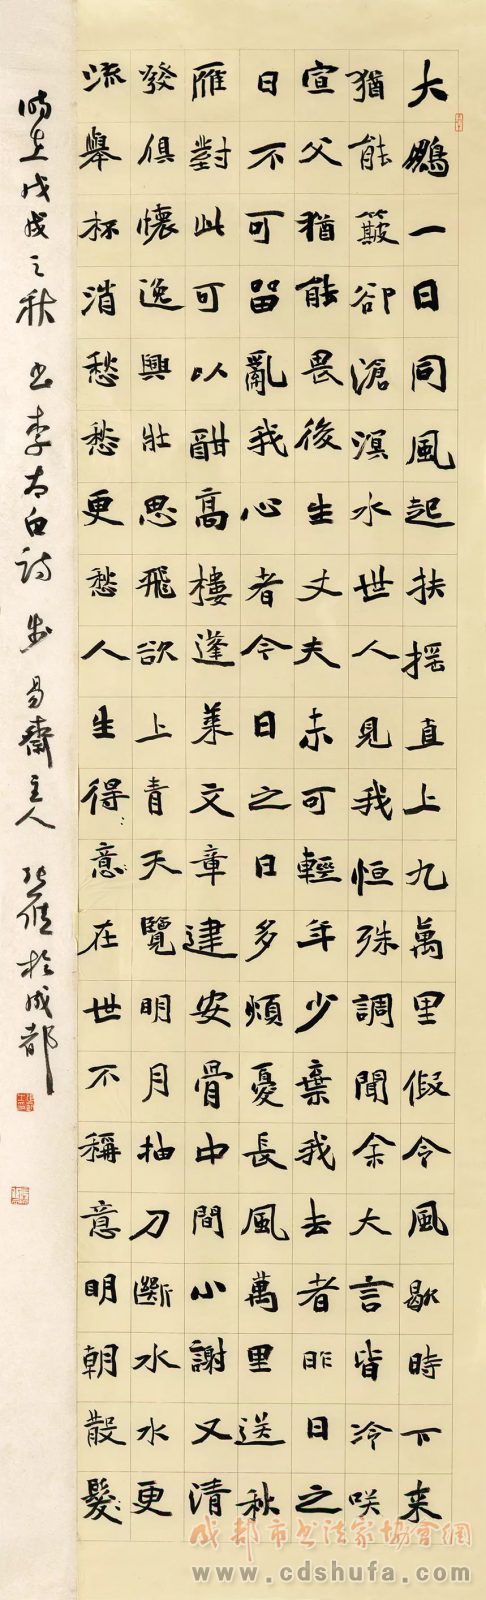 大鵬一日同風起扶搖直上九萬里假令風歇時下来
猶能簸卻滄溟水世人見我恒殊調聞余大言皆冷咲
宣父猶能畏後生丈夫未可輕年少棄我去者昨日之
日不可留亂我心者今日之日多煩憂長風萬里送秋
雁對此可以酣高樓蓬萊文章建安骨中間小謝又清
發俱懷逸興壯思飛欲上青天覽明月抽刀斷水水更
流舉杯消愁愁更愁人生得意在世不稱意明朝散髮
時在戊戌之秋 书李太白詩 易齋主人 於成都
成都市书法家協會網
www.cdshufa.com